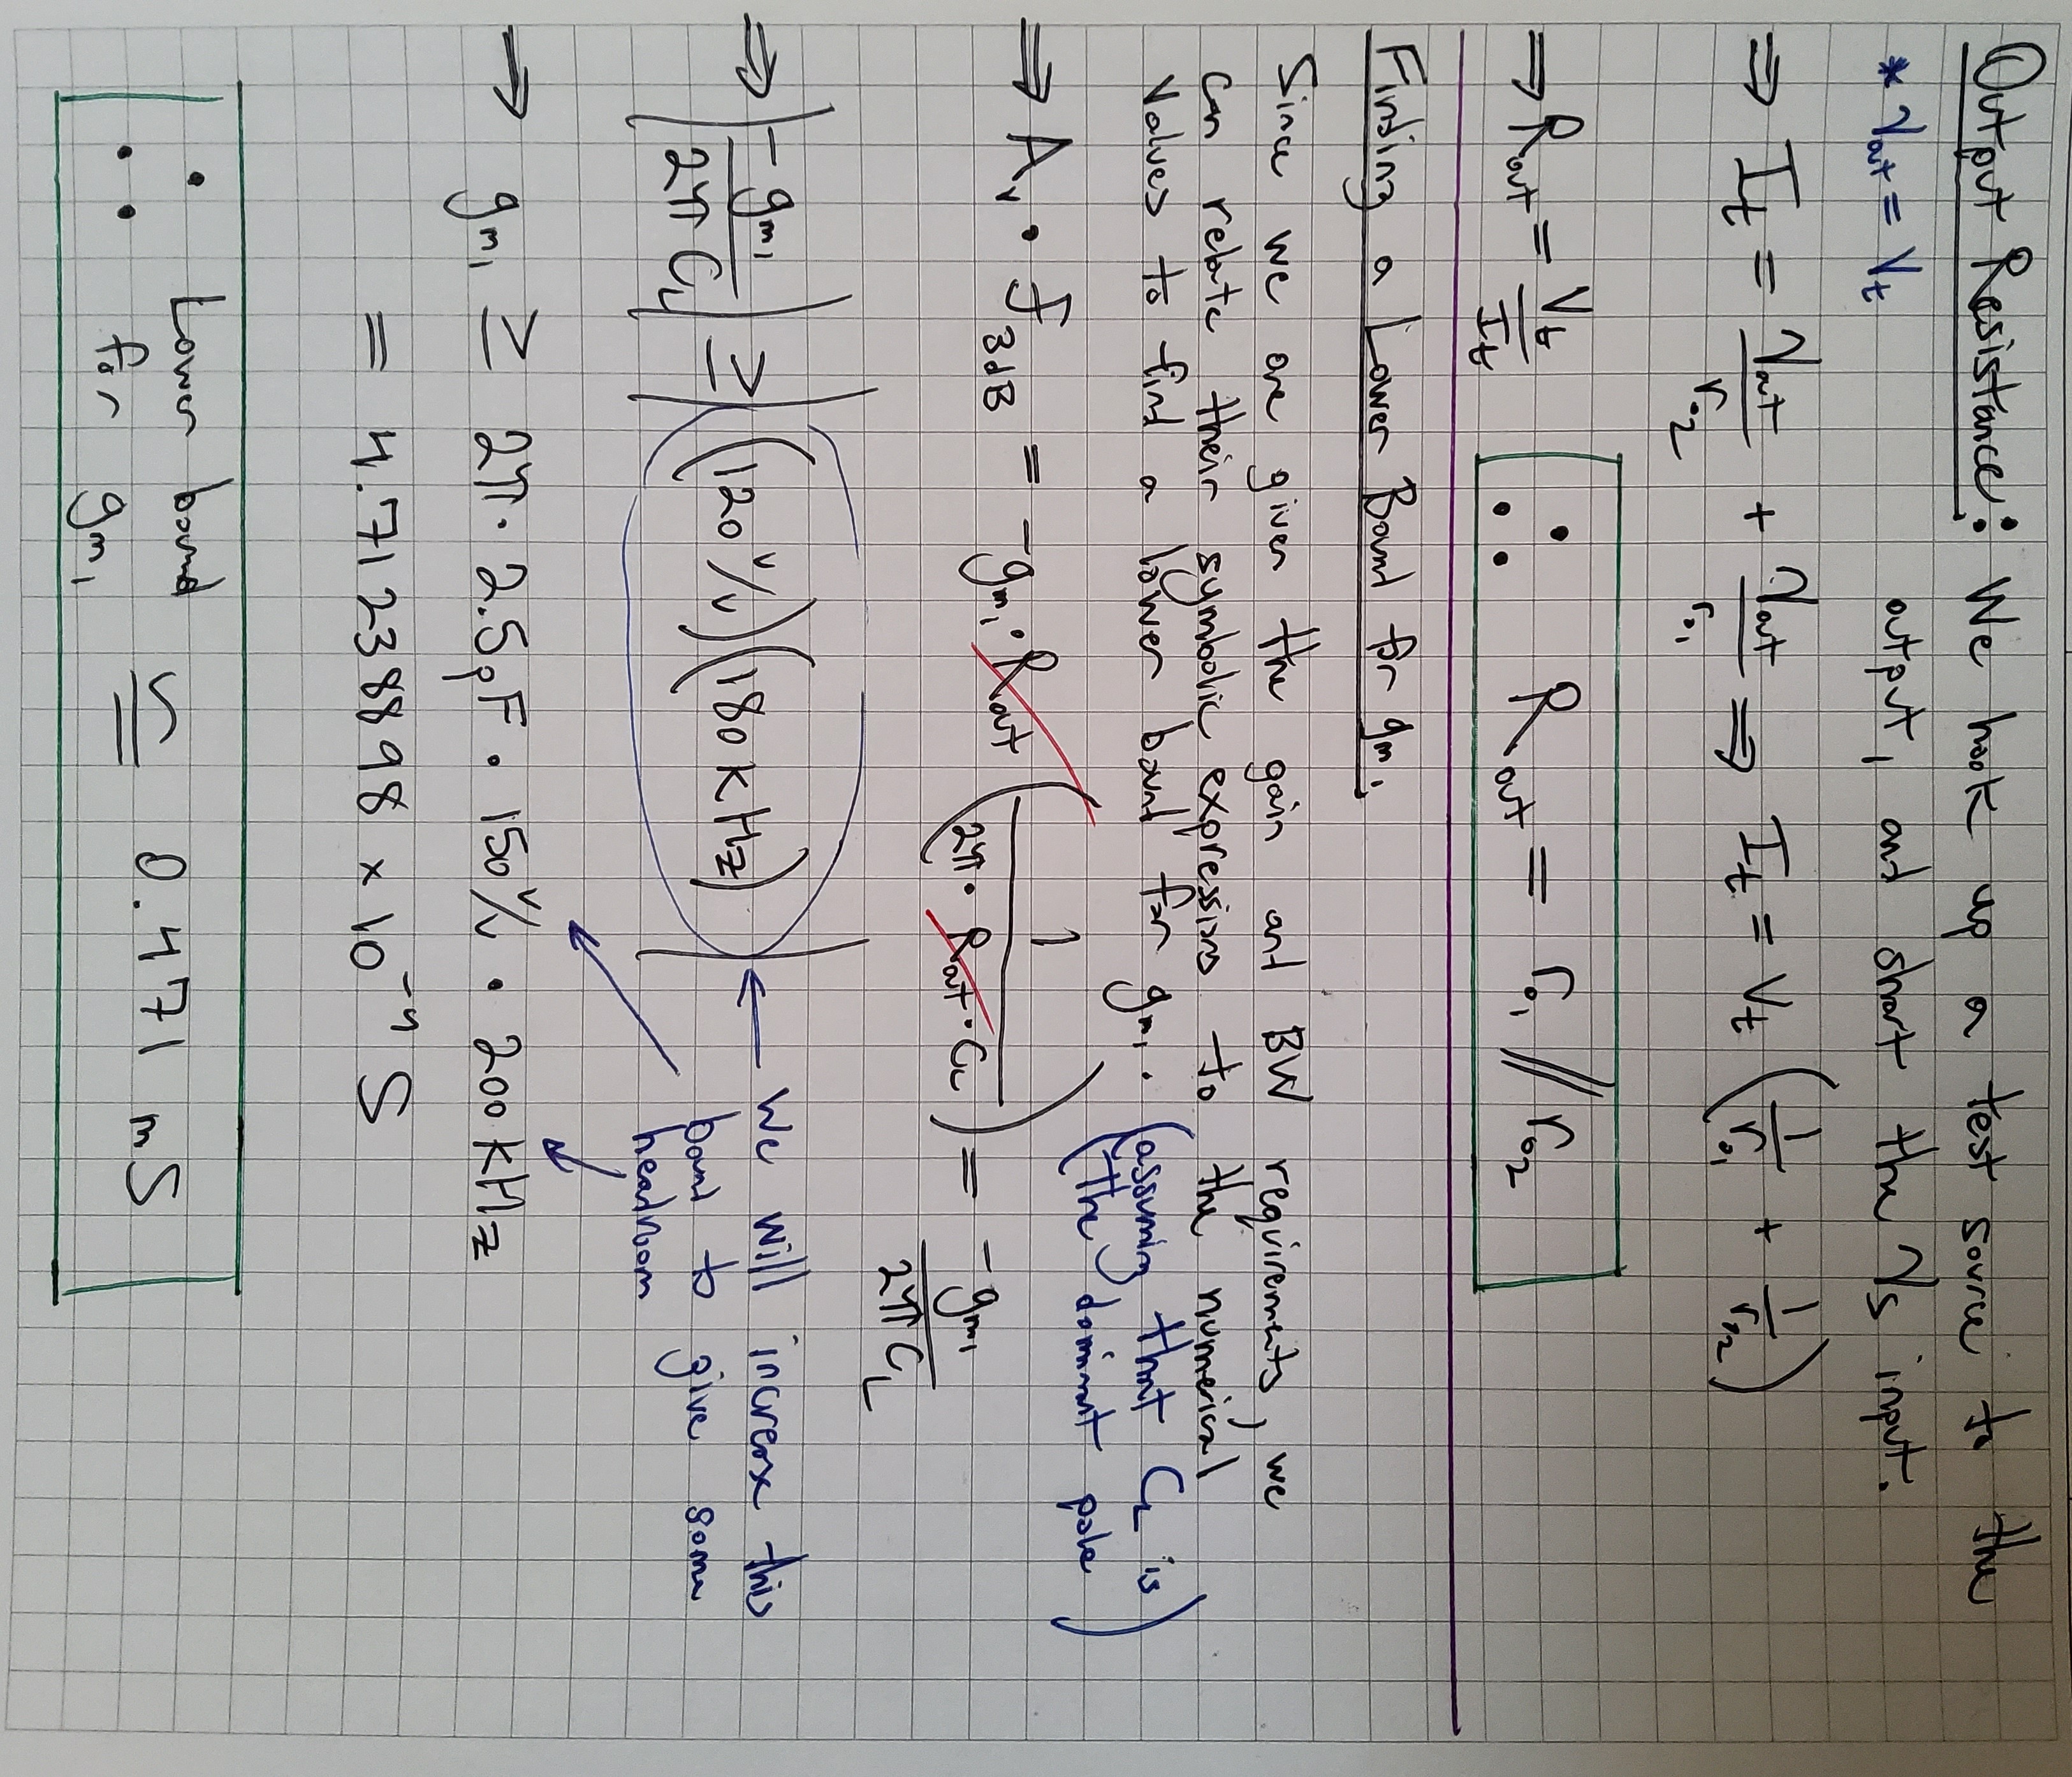 Output Resistance: We hook up a test source to the
* Vout = Vt output, and short the Vs input.
⇒ It = Vout/ro2 + Vout/ro1 ⇒ It = Vt (1/ro1 + 1/ro2)
⇒ Rout = Vt/It ∴ Rout = ro1 // ro2
Finding a Lower Bound for gm1
Since we are given the gain and BW requirements, we
can relate their symbolic expressions to the numerical
values to find a lower bound for gm1. (assuming that CL is
the dominant pole)
⇒ Av · f3dB = -gm1 · Rout (1/(2π · Rout · CL)) = -gm1/(2πCL)
⇒ |-gm1/(2πCL)| ≥ |(120 V/V)(180 kHz)| ← We will increase this
bound to give some
headroom
⇒ gm1 ≥ 2π · 2.5pF · 150 V/V · 200 kHz
= 4.71238898 × 10^-4 S
∴ Lower bound for gm1 ≅ 0.471 mS